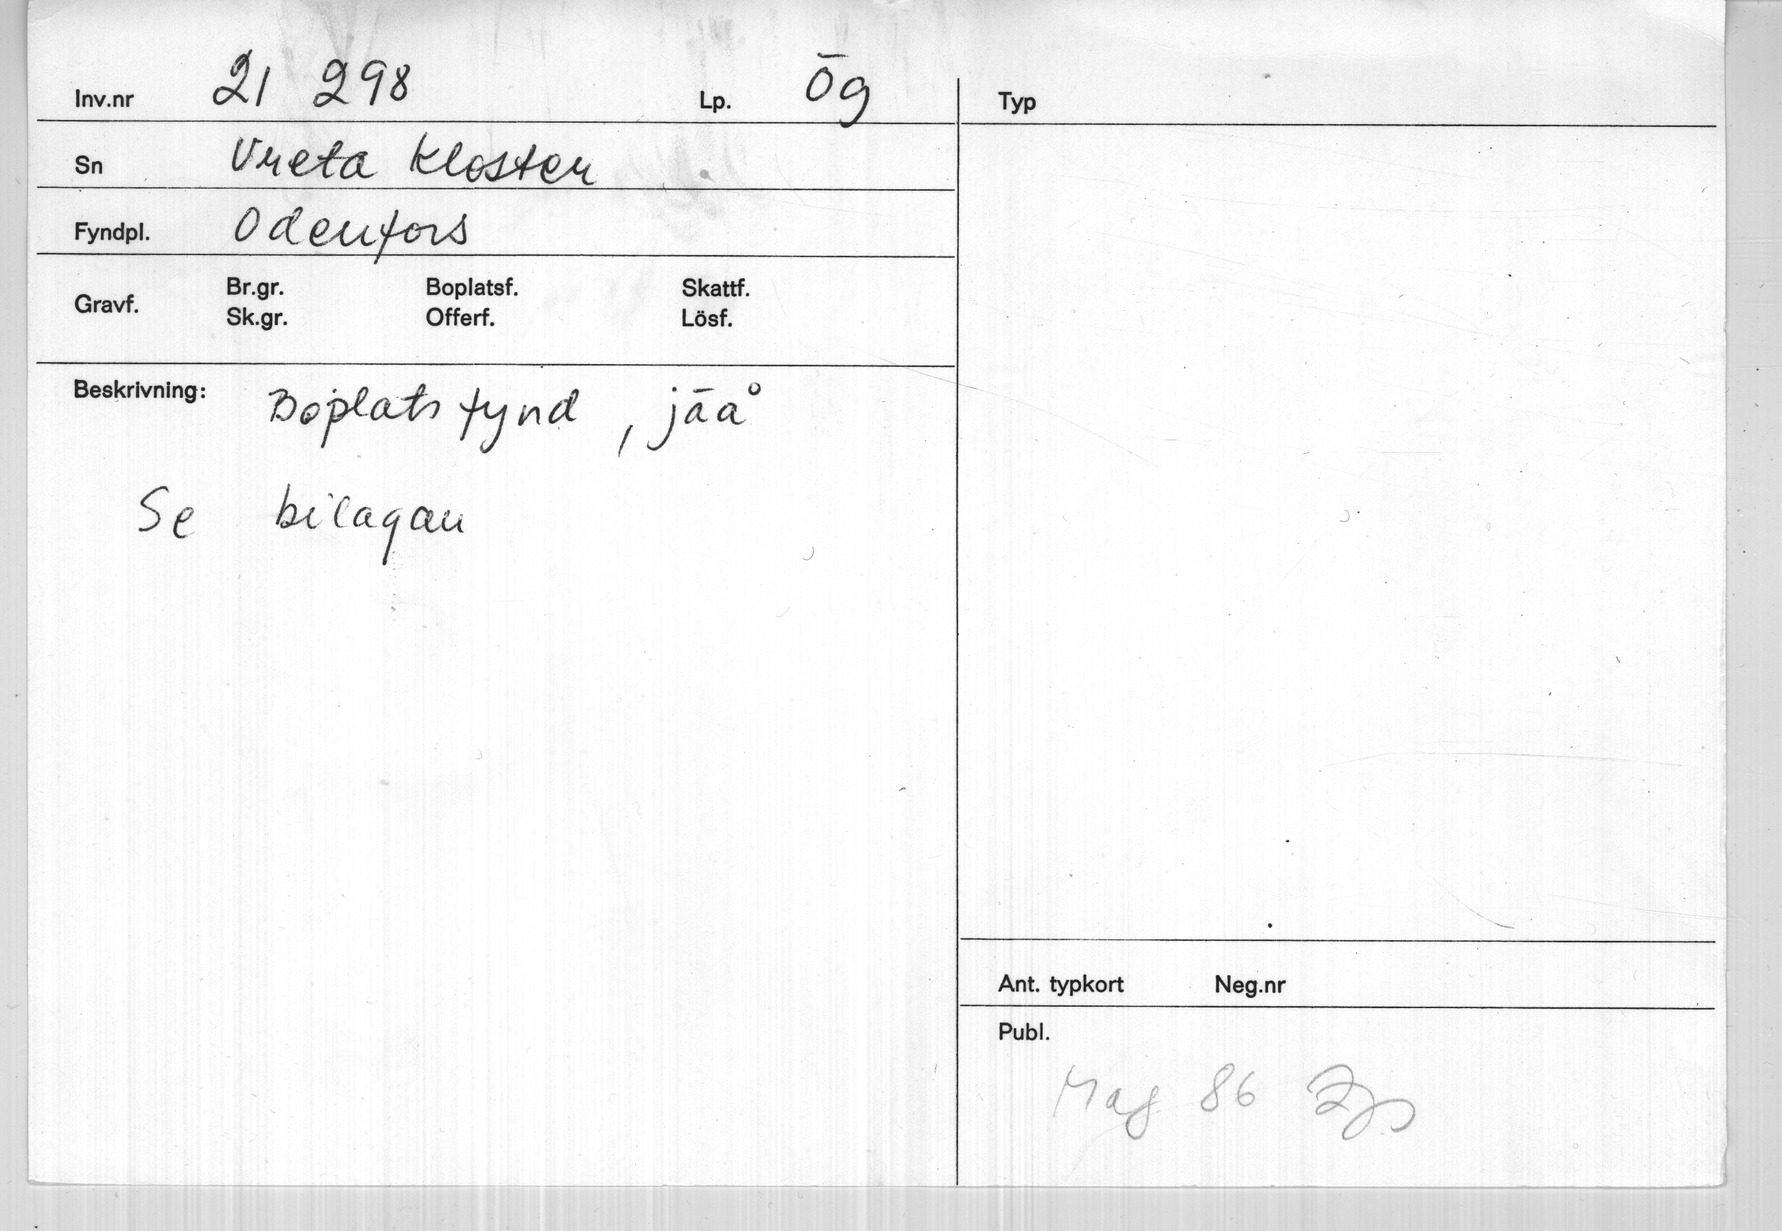 Inv.nr 21 298 Lp. Ög
Sn Vreta Kloster
Fyndpl. Odenfors
Gravf. Br.gr. Boplatsf. Skattf.
Sk.gr. Offerf. Lösf.
Beskrivning: Boplatsfynd, jäå
Se bilagan
Typ
Ant. typkort Neg.nr
Publ.
Mag 86